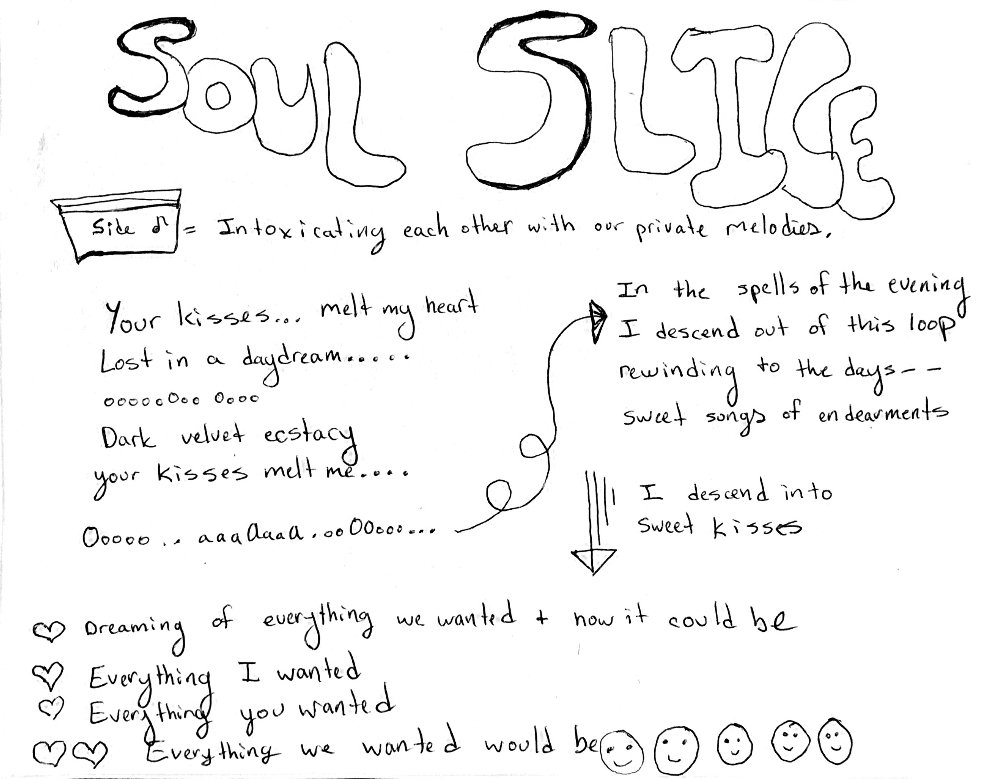 SOUL SLICE
Side = Intoxicating each other with our private melodies.
Your kisses... melt my heart
Lost in a daydream.....
oooooOoo Oooo
Dark velvet ecstacy
your kisses melt me....
Ooooo .. aaaAaaa.ooOOooo...
In the spells of the evening
I descend out of this loop
rewinding to the days--
sweet songs of endearments
I descend into
sweet kisses
Dreaming of everything we wanted + how it could be
Everything I wanted
Everything you wanted
Everything we wanted would be